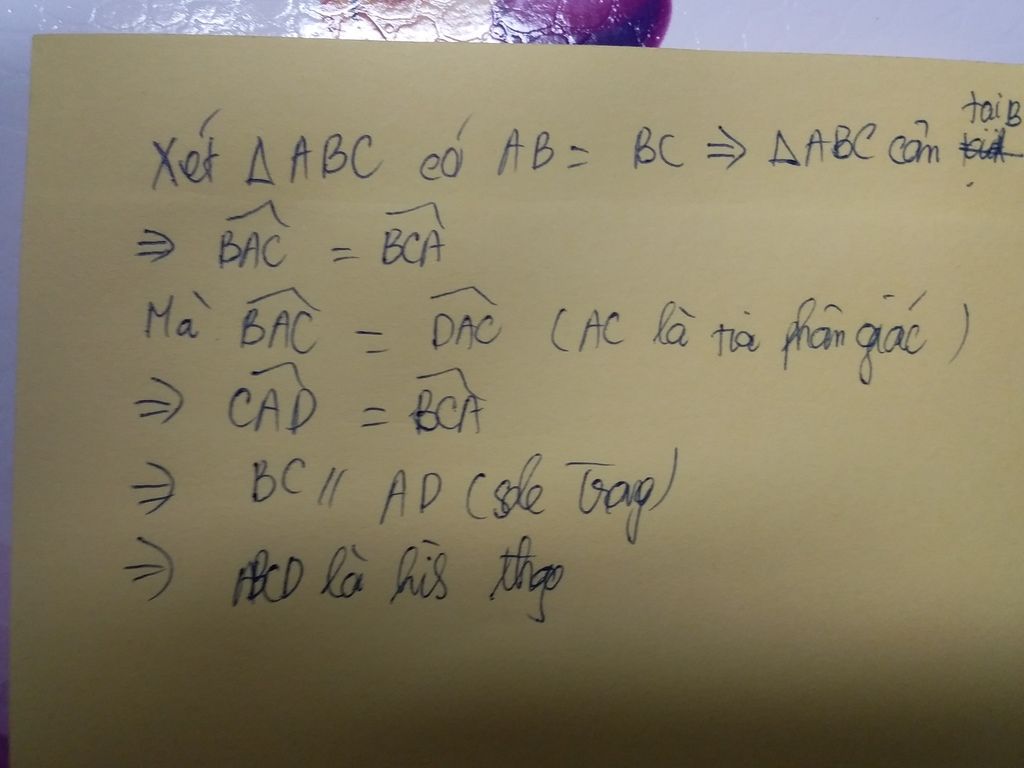 Xét ΔABC có AB = BC ⇒ ΔABC cân tại B
⇒ \widehat{BAC} = \widehat{BCA}
Mà \widehat{BAC} = \widehat{DAC} (AC là tia phân giác)
⇒ \widehat{CAD} = \widehat{BCA}
⇒ BC // AD (sole trong)
⇒ ABCD là hình thang